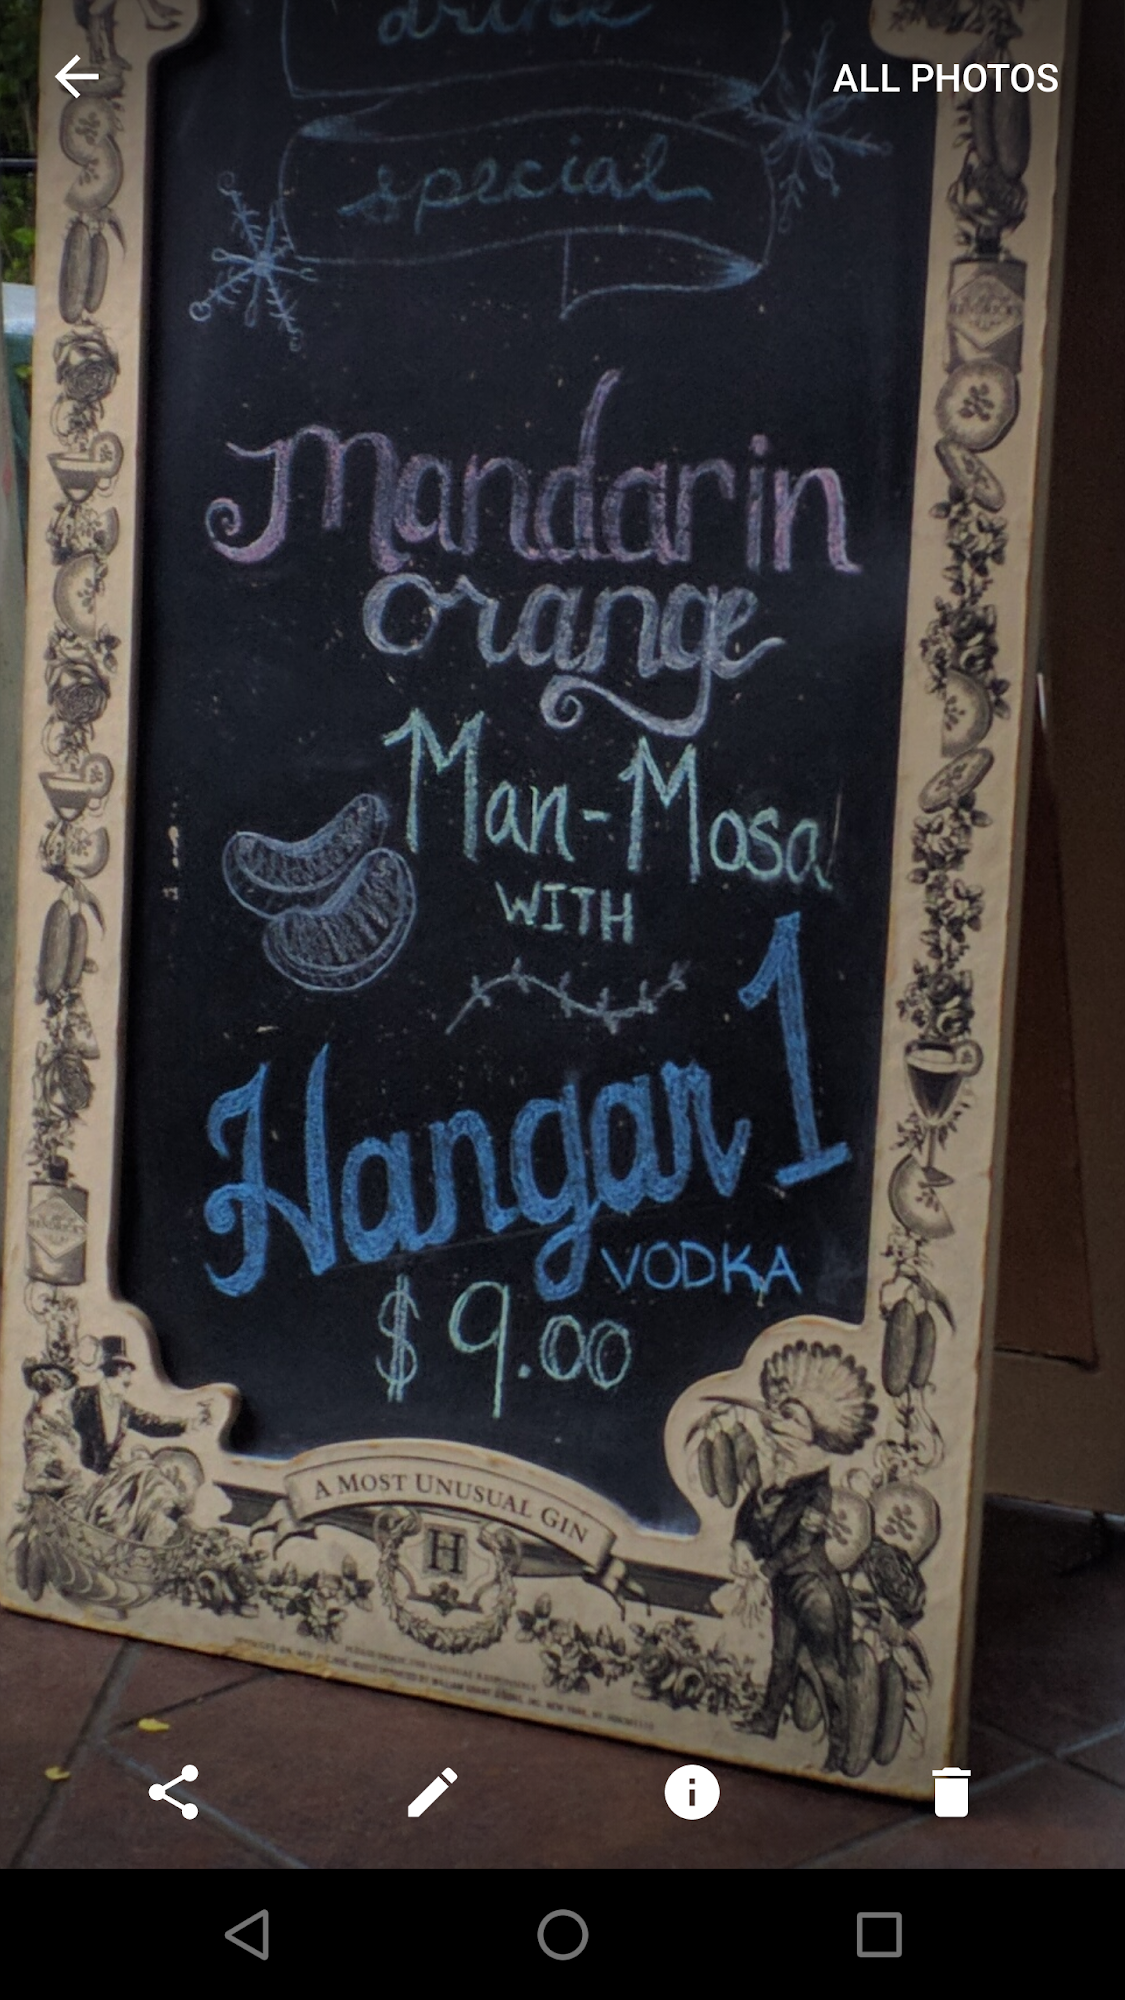 drink
ALL PHOTOS
special
Mandarin
orange
Man-Mosa
WITH
Hangar 1
VODKA
$9.00
HENDRICK'S
HENDRICK'S
A MOST UNUSUAL GIN
H